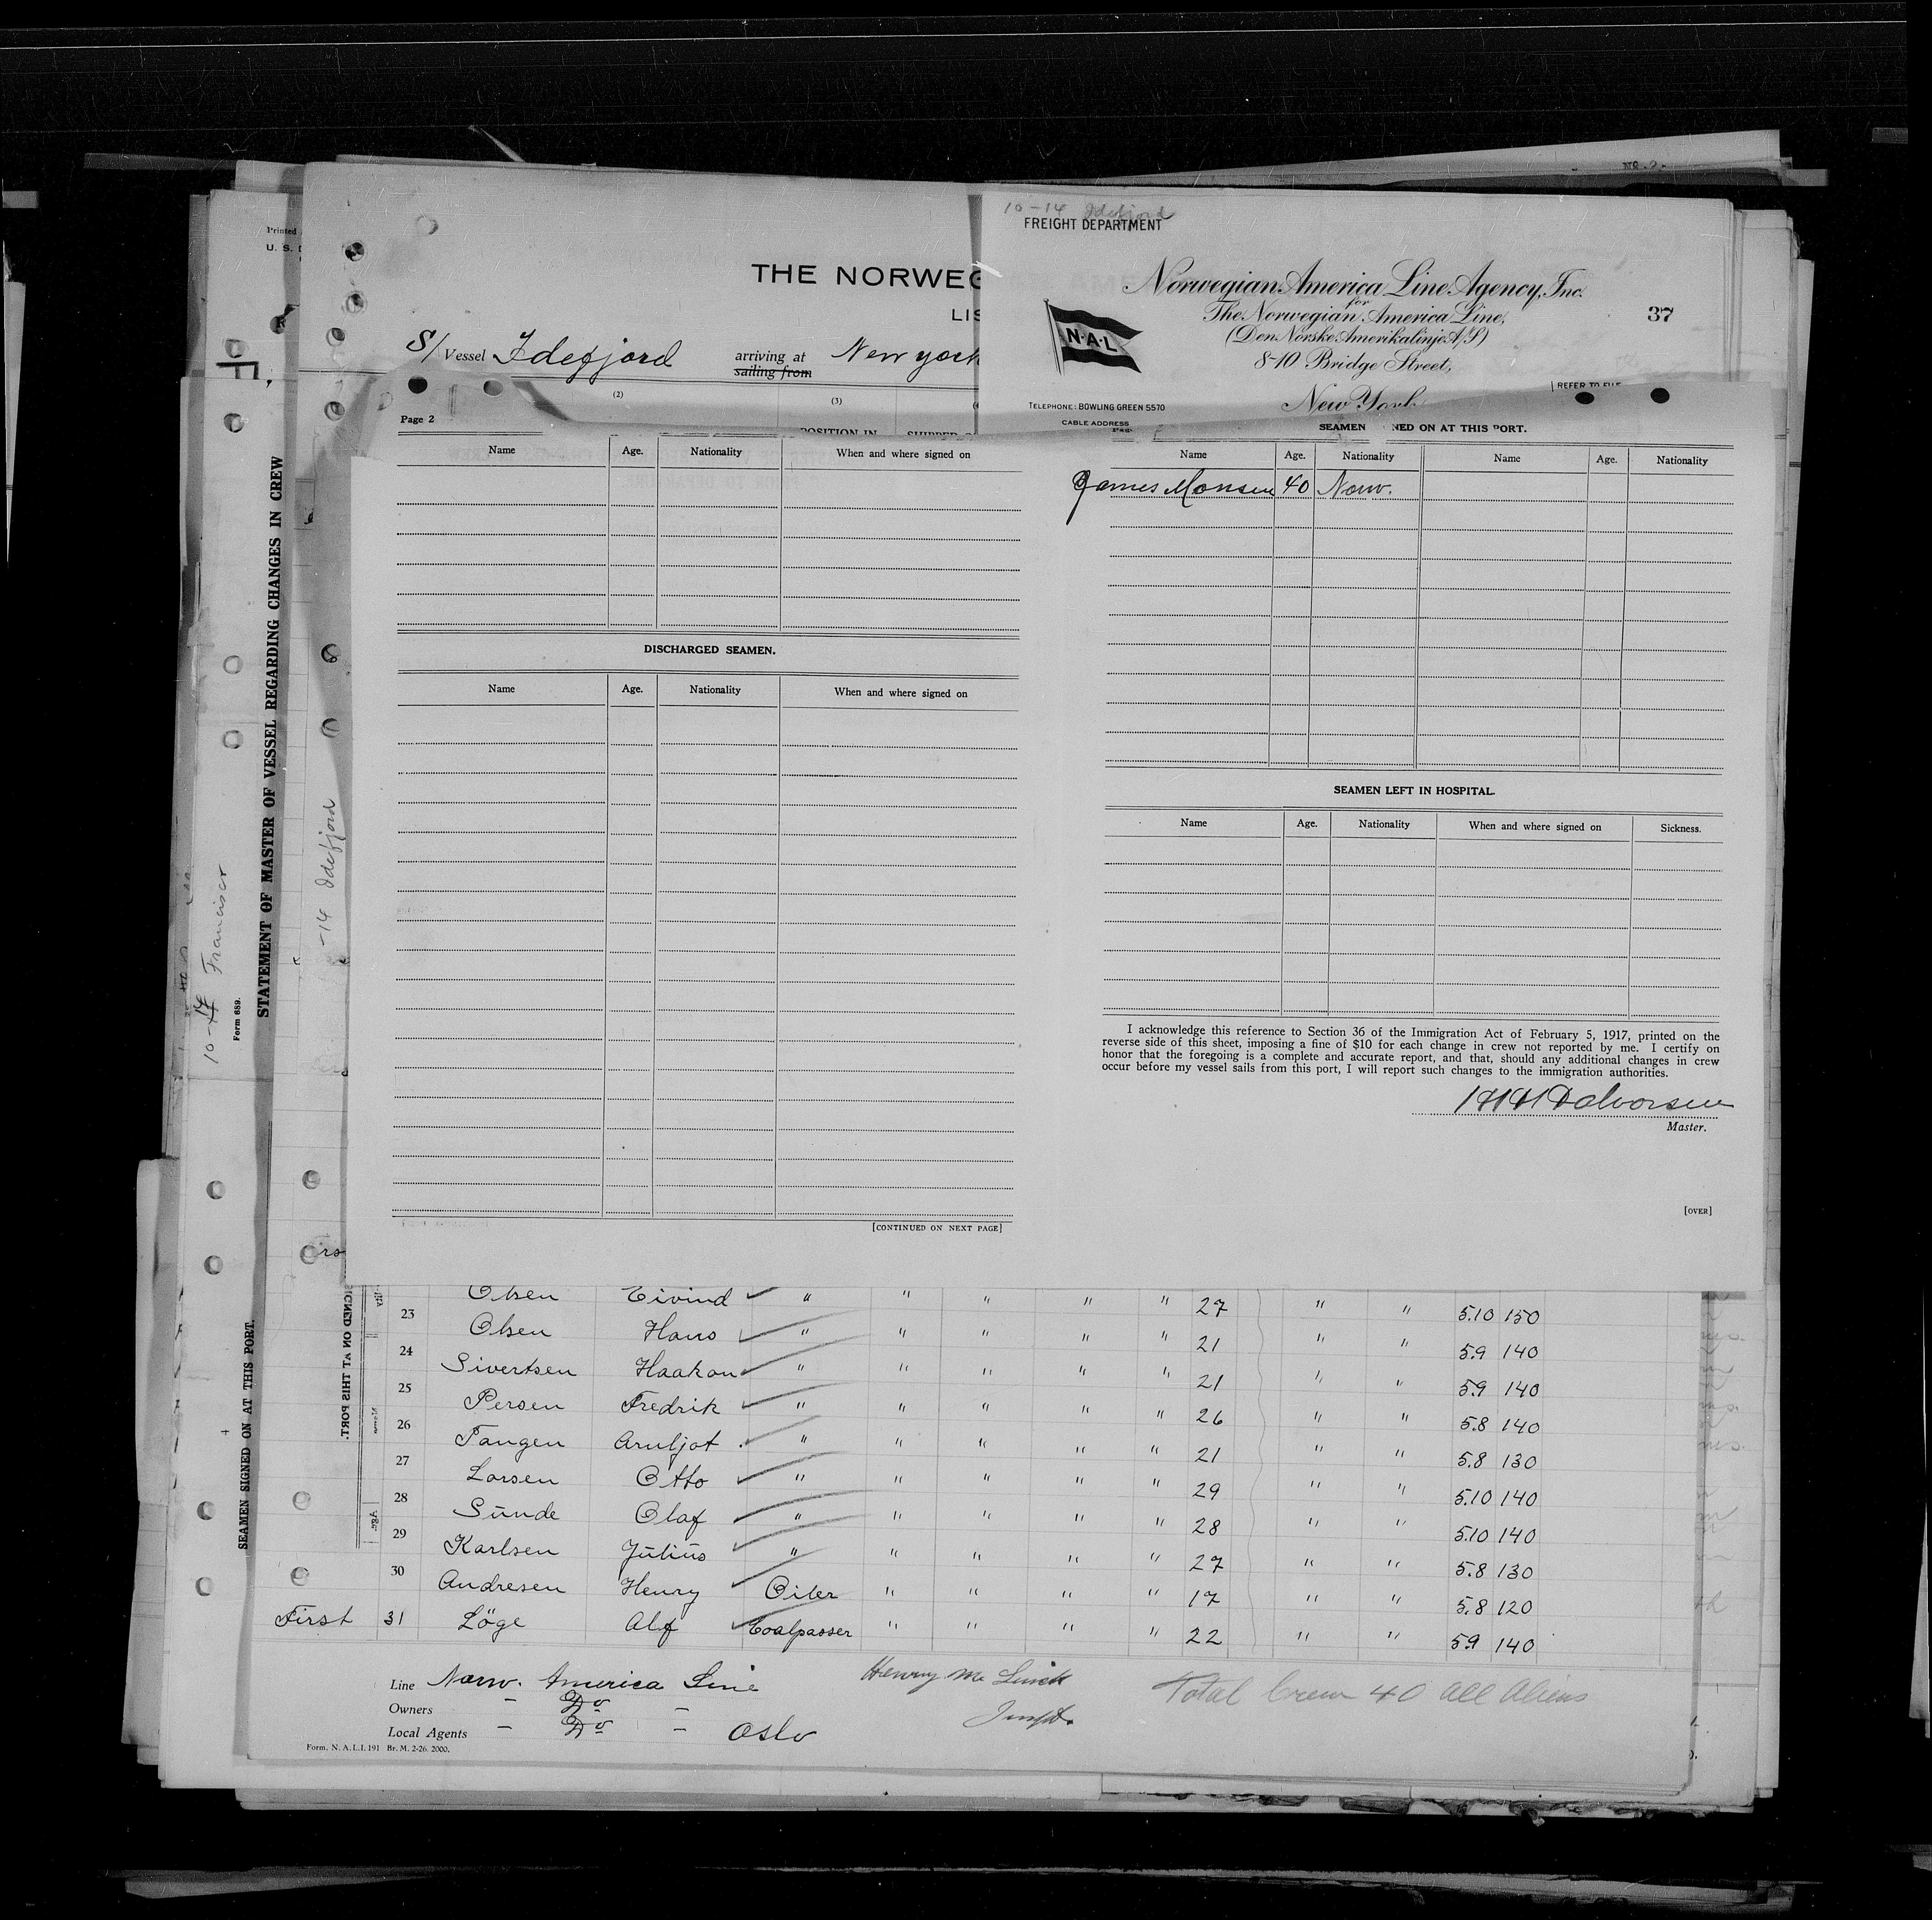 10-14 Idefjord
FREIGHT DEPARTMENT
Norwegian America Line Agency, Inc.
for
The Norwegian America Line,
(Den Norske Amerikalinje A/S)
8-10 Bridge Street,
New York
37
N·A·L
TELEPHONE: BOWLING GREEN 5570
CABLE ADDRESS
REFER TO FILE
No. 2.
Printed
U. S.
THE NORWEG
LIS
S/ Vessel Idefjord arriving at New York
sailing from
(2) (3)
POSITION IN
Page 2
Name Age. Nationality When and where signed on
DISCHARGED SEAMEN.
Name Age. Nationality When and where signed on
[CONTINUED ON NEXT PAGE]
SEAMEN NED ON AT THIS PORT.
Name Age. Nationality Name Age. Nationality
James Monsen 40 Norw.
SEAMEN LEFT IN HOSPITAL.
Name Age. Nationality When and where signed on Sickness.
I acknowledge this reference to Section 36 of the Immigration Act of February 5, 1917, printed on the
reverse side of this sheet, imposing a fine of $10 for each change in crew not reported by me. I certify on
honor that the foregoing is a complete and accurate report, and that, should any additional changes in crew
occur before my vessel sails from this port, I will report such changes to the immigration authorities.
Halvorsen
Master.
[OVER]
STATEMENT OF MASTER OF VESSEL REGARDING CHANGES IN CREW
Form 689.
SEAMEN SIGNED ON AT THIS PORT.
10-14 Francisco
-14 Idefjord
IGNED ON AT THIS PORT.
Olsen Eivind " " " " " 27 " " 5.10 150
23 Olsen Hans " " " " " 21 " " 5.9 140
24 Sivertsen Haakon " " " " " 21 " " 5.9 140
25 Persen Fredrik " " " " " 26 " " 5.8 140
26 Tangen Arnljot " " " " " 21 " " 5.8 130
27 Larsen Otto " " " " " 29 " " 5.10 140
28 Sunde Olaf " " " " " 28 " " 5.10 140
29 Karlsen Julius " " " " " 27 " " 5.8 130
30 Andresen Henry Oiler " " " " 17 " " 5.8 120
First 31 Löge Alf Coalpasser " " " " 22 " " 5.9 140
Line Norw. America Line
Owners — Do —
Local Agents — Do — Oslo
Henry
Total Crew 40 all aliens
Form. N. A. L. I. 191 Br. M. 2-26. 2000.